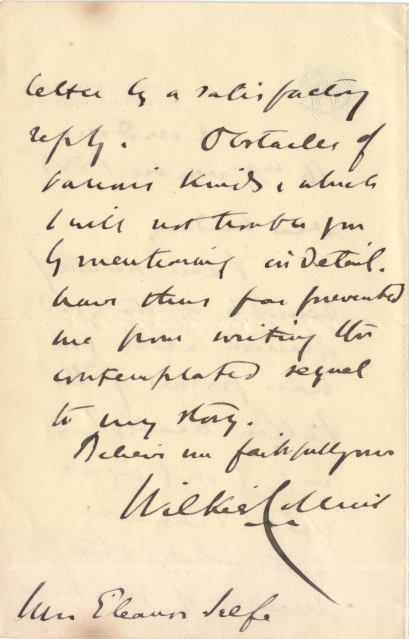 letter by a satisfactory
reply. Obstacles of
various kinds, which
I will not trouble you
by mentioning in detail,
have thus far prevented
me from writing the
contemplated sequel
to my story.
Believe me faithfully yours
Wilkie Collins
Eleanor Selfe